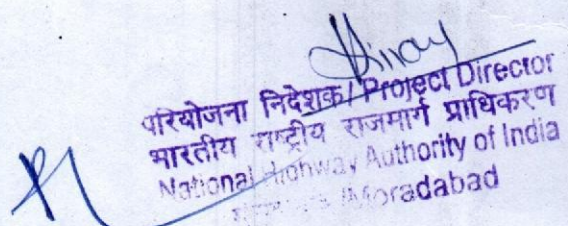 परियोजना निदेशक/Project Director
भारतीय राष्ट्रीय राजमार्ग प्राधिकरण
National Highway Authority of India
/Moradabad